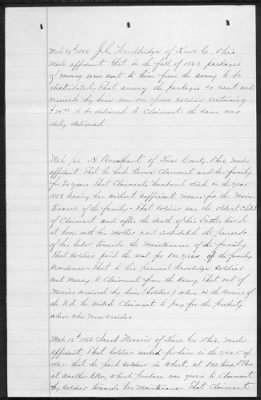 Mch 19th 1866 John Wooldridge of Knox Co. Ohio
made affidavit that in the fall of 1862 packages
of money were sent to him from the army to be
distributed, that among the packages so sent and
received by him was one from soldier containing
to be delivered to Claimant the same was
duly delivered
of Knox County, Ohio made
affidavit That he had known Claimant and her family
for 20 years That Claimants husband died in the year
1858 leaving her without sufficient means for the Main
tenance of the family - That soldier was the oldest Child
of Claimant and after the death of his Father lived
at home with his Mother and contributed the proceeds
of his labor towards the Maintenance of the family
That Soldier paid the rent for one year of the family
residence - That to his personal knowledge soldier
sent money to Claimant from the army that out of
Monies received by him (Soldier) when in the service of
the U.S. he aided Claimant to pay for the property
where she now resides
Mch 13th 1866 Jacob of Knox Co. Ohio made
affidavit That soldier worked for him in the year of
1861 that he paid soldier in Wheat, at one time
at another which produce was given to Claimant
by soldier towards her maintenance - That Claimants